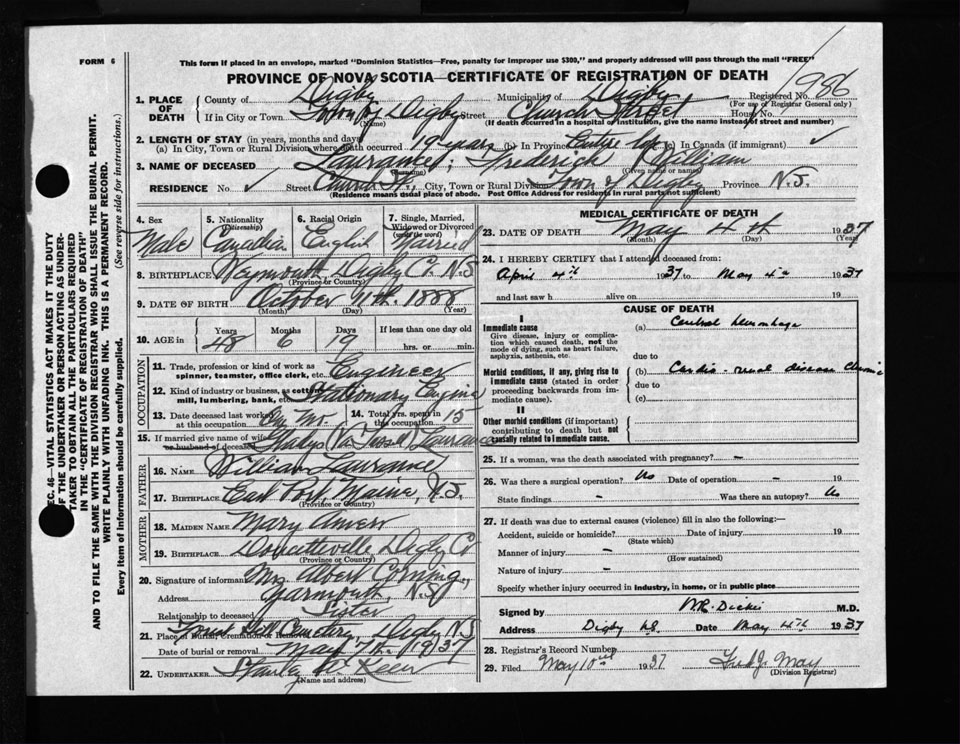 FORM 6
This form if placed in an envelope, marked "Dominion Statistics—Free, penalty for improper use $300," and properly addressed will pass through the mail "FREE"
PROVINCE OF NOVA SCOTIA—CERTIFICATE OF REGISTRATION OF DEATH
986
1. PLACE OF DEATH
County of Digby Municipality of Digby Registered No.
(For use of Registrar General only)
If in City or Town Town of Digby Street Church Street Hour
(Name) (If death occurred in a hospital or institution, give the name instead of street and number)
2. LENGTH OF STAY (in years, months and days)
(a) In City, Town or Rural Division where death occurred 19 years (b) In Province Entire life (c) In Canada (if immigrant) ✓
3. NAME OF DECEASED Laurance, Frederick William
(Surname) (Given name or names)
RESIDENCE No. ✓ Street Church St., City, Town or Rural Division Town of Digby Province N.S.
(Residence means usual place of abode. Post Office Address for residents in rural parts not sufficient)
SEC. 46—VITAL STATISTICS ACT MAKES IT THE DUTY
OF THE UNDERTAKER OR PERSON ACTING AS UNDER-
TAKER TO OBTAIN ALL THE PARTICULARS REQUIRED
IN THE "CERTIFICATE OF REGISTRATION OF DEATH"
AND TO FILE THE SAME WITH THE DIVISION REGISTRAR WHO SHALL ISSUE THE BURIAL PERMIT.
WRITE PLAINLY WITH UNFADING INK. THIS IS A PERMANENT RECORD.
Every item of information should be carefully supplied. (See reverse side for instructions.)
4. Sex 5. Nationality 6. Racial Origin 7. Single, Married,
(Citizenship) Widowed or Divorced
(write the word)
Male Canadian English Married
8. BIRTHPLACE Weymouth, Digby Co. N.S
(Province or Country)
9. DATE OF BIRTH October 11th. 1888
(Month) (Day) (Year)
10. AGE in Years Months Days If less than one day old
48 6 19 hrs. or min.
OCCUPATION
11. Trade, profession or kind of work as Engineer
spinner, teamster, office clerk, etc.
12. Kind of industry or business, as cotton Stationary Engine
mill, lumbering, bank, etc.
13. Date deceased last worked 14. Total yrs. spent in 15
at this occupation this occupation
15. If married give name of wife Gladys Laurance
or husband of deceased
FATHER
16. NAME William Laurance
17. BIRTHPLACE East Port, Maine,
(Province or Country)
MOTHER
18. MAIDEN NAME Mary
19. BIRTHPLACE Doucetteville, Digby Co
(Province or Country)
20. Signature of informant Mrs Albert Corning,
Address Yarmouth, N.S
Relationship to deceased Sister
21. Place of Burial, Cremation or Removal Forest Hill Cemetery, Digby N.S
Date of burial or removal May 7th. 1937
22. UNDERTAKER Stanley Keen
(Name and address)
MEDICAL CERTIFICATE OF DEATH
23. DATE OF DEATH May 4th 1937
(Month) (Day) (Year)
24. I HEREBY CERTIFY that I attended deceased from:
April 4th 1937 to May 4th 1937
and last saw h alive on 19
CAUSE OF DEATH
I
Immediate cause (a)
Give disease, injury or complica-
tion which caused death, not the
mode of dying, such as heart failure,
asphyxia, asthenia, etc.
due to
Morbid conditions, if any, giving rise to (b) Cardio-renal disease chronic
immediate cause (stated in order due to
proceeding backwards from im- (c)
mediate cause).
II
Other morbid conditions (if important)
contributing to death but not
causally related to immediate cause.
25. If a woman, was the death associated with pregnancy? —
26. Was there a surgical operation? No Date of operation — 19
State findings — Was there an autopsy? No
27. If death was due to external causes (violence) fill in also the following:—
Accident, suicide or homicide? Date of injury 19
(State which)
Manner of injury —
(How sustained)
Nature of injury —
Specify whether injury occurred in industry, in home, or in public place
Signed by Dickie M.D.
Address Digby NS. Date May 4th 1937
28. Registrar's Record Number
29. Filed May 10th 1937 Fred J. May
(Division Registrar)